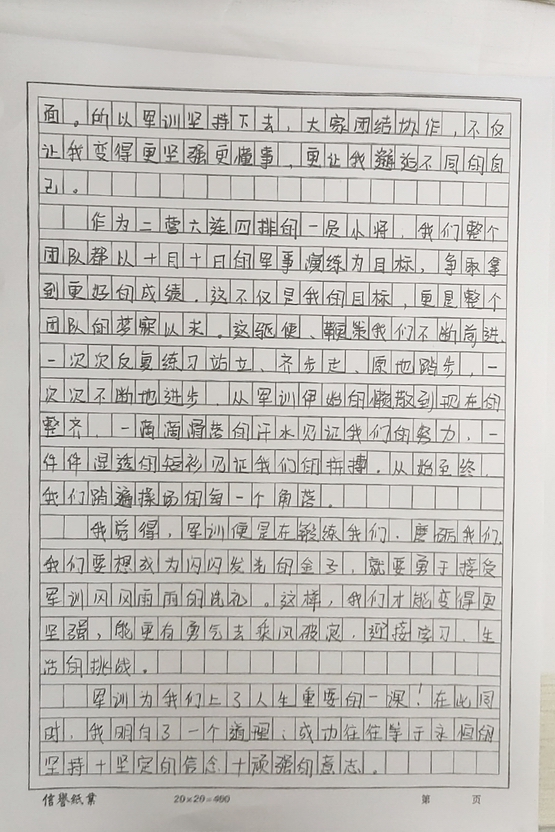 面。所以军训坚持下去，大家团结协作，不仅
让我变得更坚强更懂事，更让我邂逅不同的自
己。
作为二营六连四排的一员小将，我们整个
团队都以十月十日的军事演练为目标，争取拿
到更好的成绩。这不仅是我的目标，更是整个
团队的梦寐以求。这驱使、鞭策我们不断前进，
一次次反复练习站立、齐步走、原地踏步，一
次次不断地进步，从军训伊始的懒散到现在的
整齐，一滴滴滑落的汗水见证我们的努力，一
件件湿透的短衫见证我们的拼搏，从始至终，
我们踏遍操场的每一个角落。
我觉得，军训便是在锻练我们，磨砺我们，
我们要想成为闪闪发光的金子，就要勇于接受
军训风风雨雨的洗礼。这样，我们才能变得更
坚强，能更有勇气去乘风破浪，迎接学习、生
活的挑战。
军训为我们上了人生重要的一课！在此同
时，我明白了一个道理：成功往往等于永恒的
坚持＋坚定的信念＋顽强的意志。
信誉纸业 20×20=400 第 页